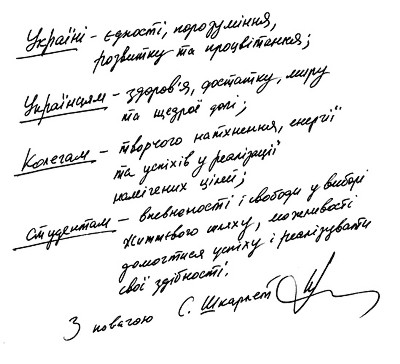 Україні – єдності, порозуміння,
розвитку та процвітання;
Українцям – здоров'я, достатку, миру
та щедрої долі;
Колегам – творчого натхнення, енергії
та успіхів у реалізації
намічених цілей;
Студентам – впевненості і свободи у виборі
життєвого шляху, можливості
домогтися успіху і реалізувати
свої здібності!
З повагою С. Шкарлет